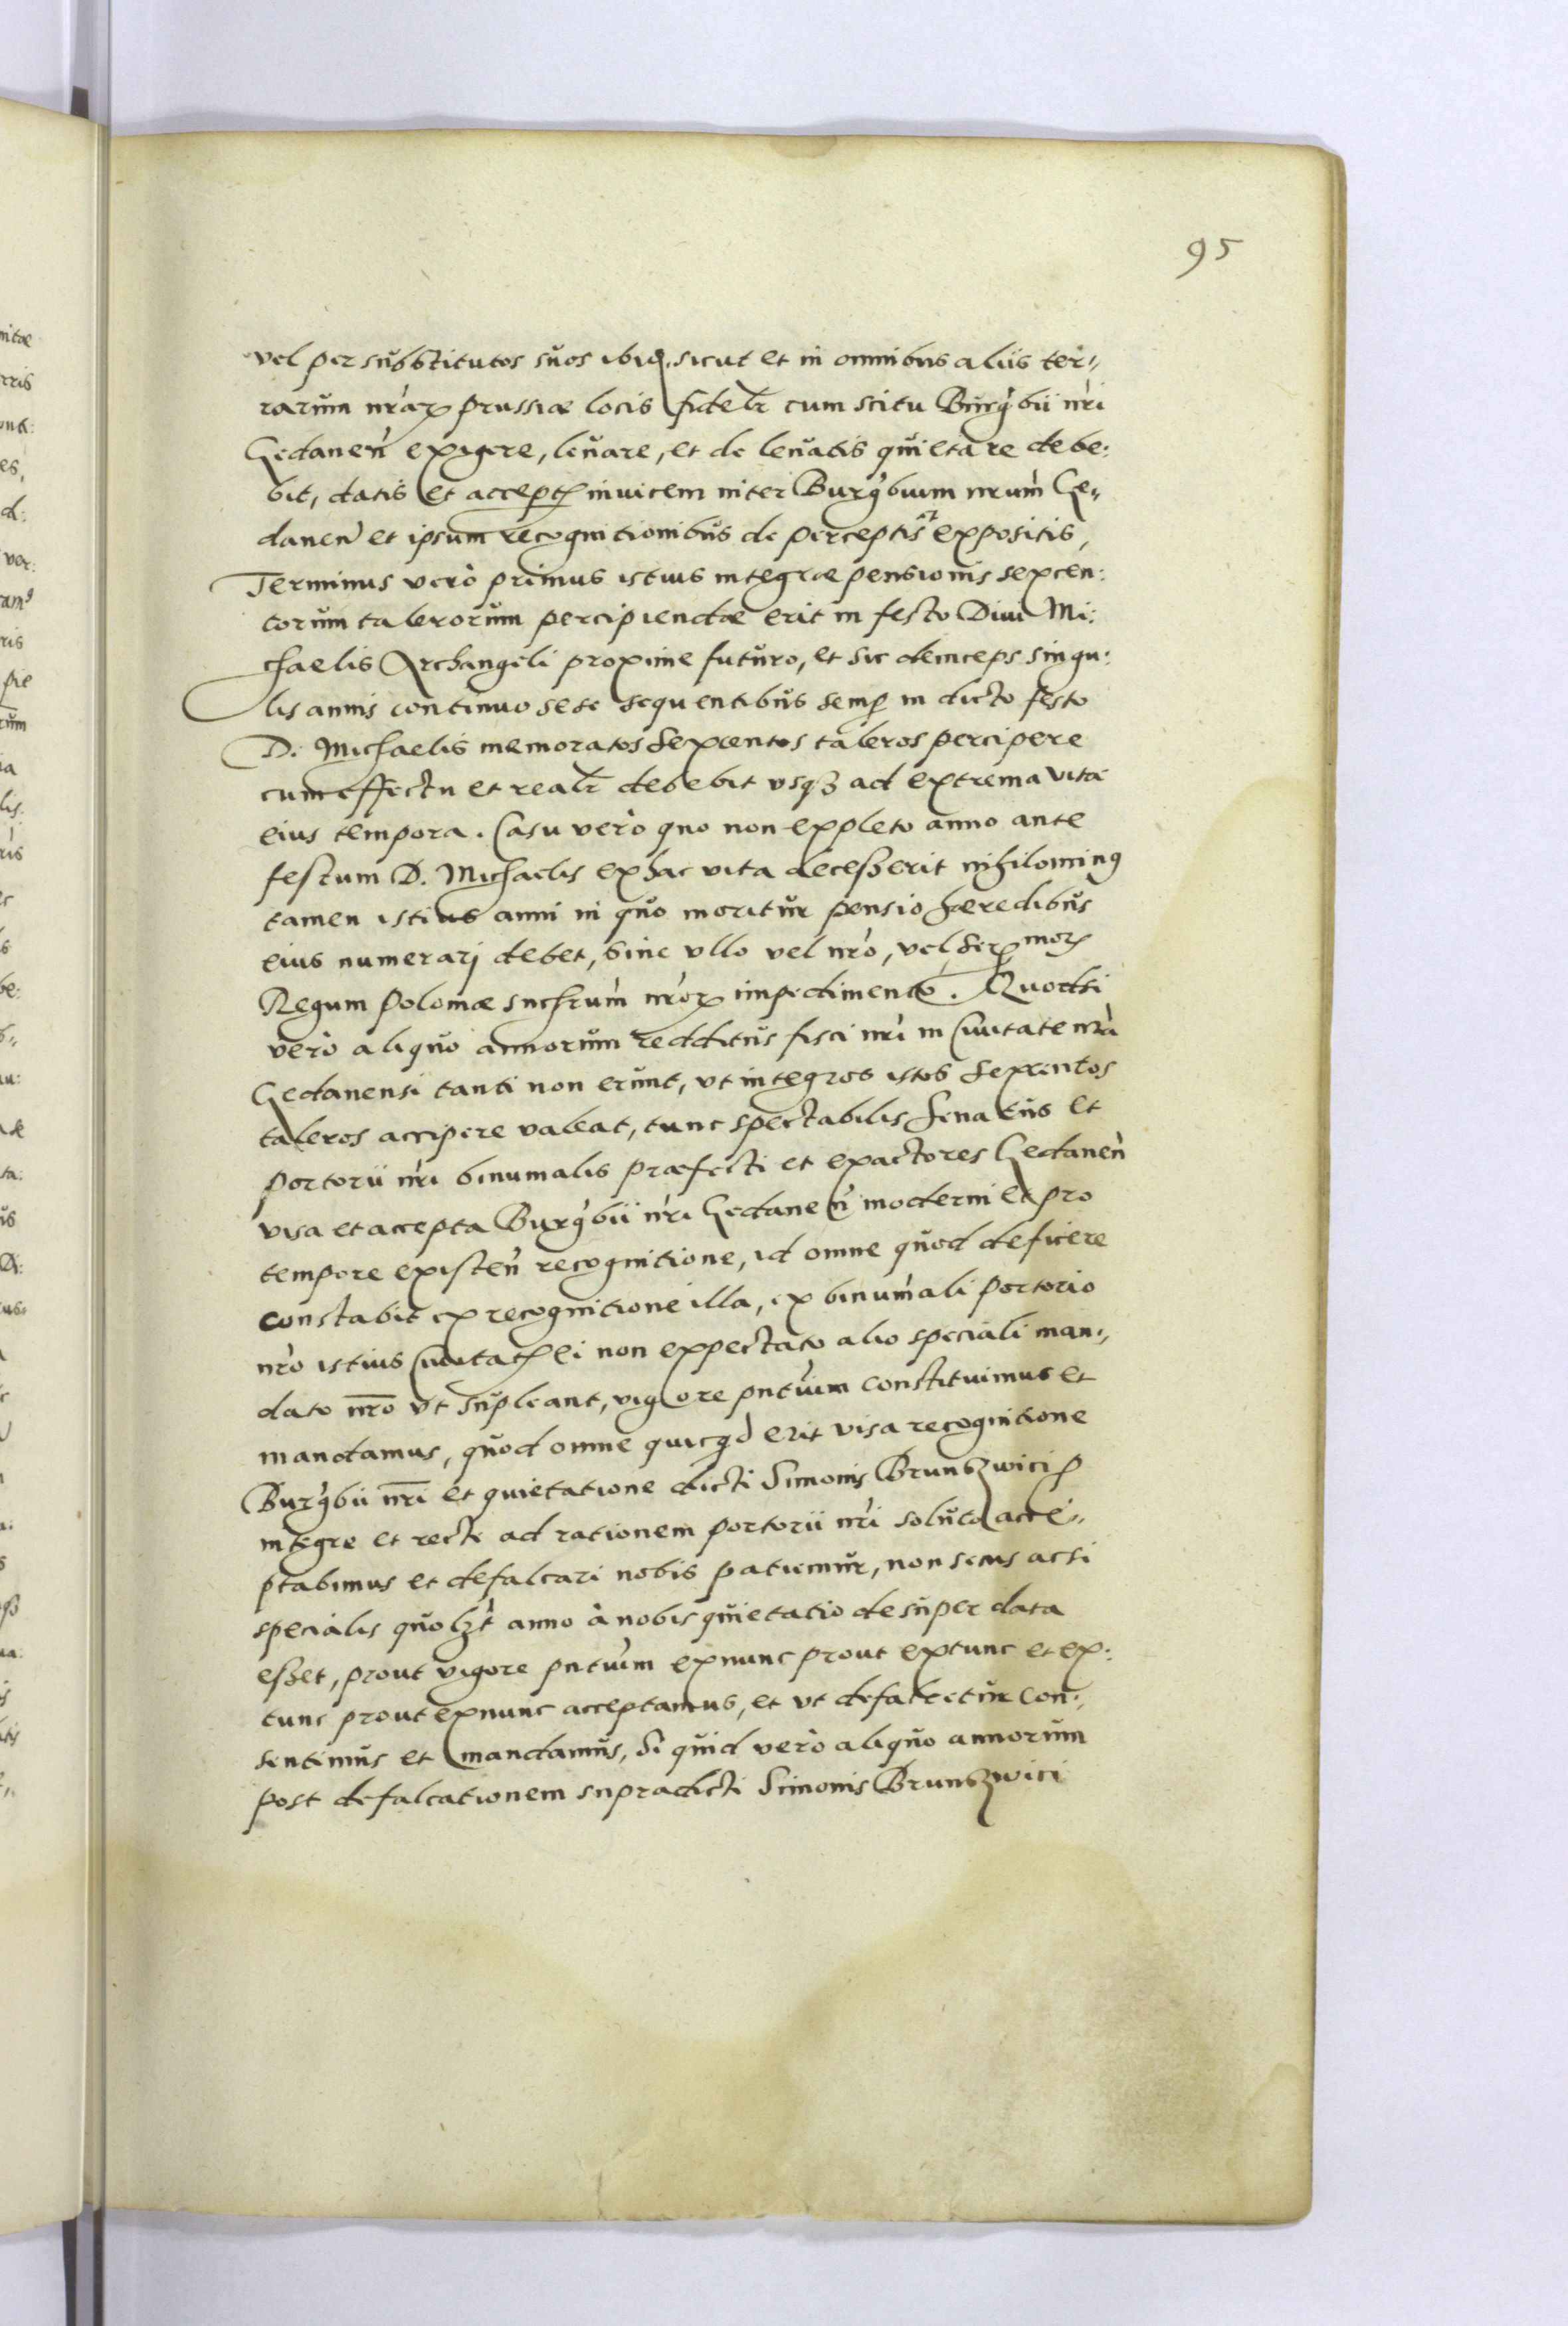 95
vel per substitutos suos ibiq, sicut et in omnibus aliis ter,,
rarum nrar, prussiae locis fidelr cum scitu Burgbii nri
Gedanen exigere, levare, et de levatis quietare debe:
bit, datis et accept invicem inter Burgbium nrum Ge,,
danen et ipsum recognitionibus de perceptis et expositis,
Terminus vero primus istius integrae pensionis sexcen:
torum talerorum percipiendae erit in festo Divi Mi:
chaelis Archangeli proxime futuro, et sic deinceps singu:
lis annis continuo sese sequentibus semp in dicto festo
D. Michaelis memoratos sexcentos taleros percipere
cum effectu et realr debebit usq3 ad extrema vitae
eius tempora. Casu vero quo non expleto anno ante
festum D. Michaelis ex hac vita decesserit nihilominq
tamen istius anni in quo moritur pensio haeredibus
eius numerarj debet, sine ullo vel nro, vel Ser mor
Regum Poloniae suchrum nror impedimento. Quodsi
vero aliquo annorum redditus fisci nri in Civitate nra
Gedanensi tanti non erunt, ut integros istos sexcentos
taleros accipere valeat, tunc spectabilis senatus et
portorii nri binumalis praefecti et exactores Gedanen
visa et accepta Burgbii nri Gedanen moderni et pro
tempore existen recognitione, id omne quod deficere
constabit ex recognitione illa, ex binumali portorio
nro istius Civitat ei non expectato alio speciali man,,
dato nro ut supleant, vigore pntium constituimus et
mandamus, quod omne quicqd erit visa recognitione
Burgbii nri et quietatione dicti Simonis Brunszwici p
integre et recte ad rationem portorii nri soluto acce,,
ptabimus et defalcari nobis patiemur, non secus acsi
specialis quolzt anno à nobis quietatio desuper data
esset, prout vigore pntium exnunc prout extunc et ex:
tunc prout exnunc acceptamus, et ut defalcetur con,,
sentimus et mandamus, Si quid vero aliquo annorum
post defalcationem supradicti Simonis Brunszwici